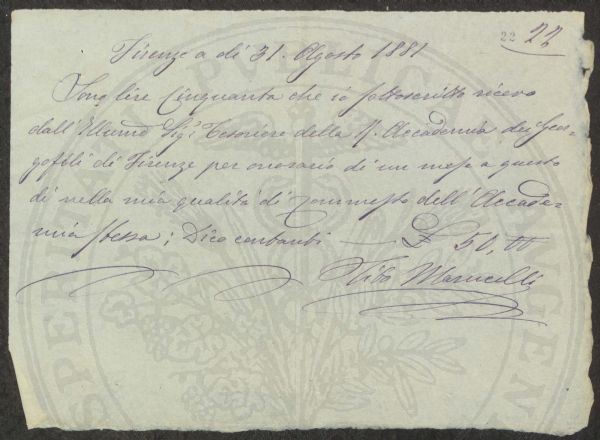 22 22
Firenze a dì 31. Agosto 1881
Sono lire Cinquanta che io sottoscritto ricevo
dall'Illumo Sigr Tesoriere della R. Accademia dei Geor-
gofili di Firenze per onorario di un mese a questo
dì nella mia qualità di commesso dell'Accade-
mia stessa; Dico contanti — £ 50,00
Tito Marucelli
PUBLICAE
PROSPERITATI AUGENDAE